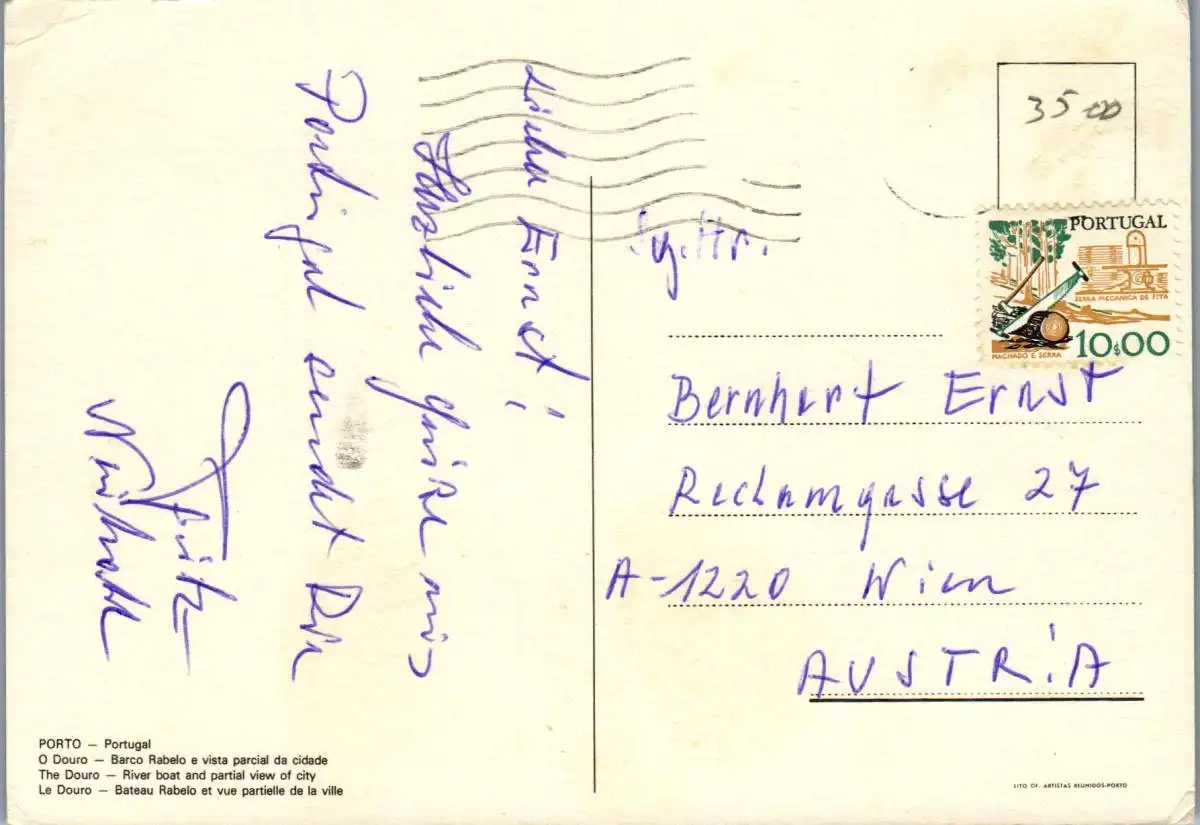 Lieber Ernst!
Herzliche Grüße aus
Portugal sendet Dir
Fritz
35 00
PORTUGAL
SERRA MECANICA DE FITA
MACHADO E SERRA
10$00
Hr.
Bernhart Ernst
Reclamgasse 27
A-1220 Wien
AUSTRiA
PORTO — Portugal
O Douro — Barco Rabelo e vista parcial da cidade
The Douro — River boat and partial view of city
Le Douro — Bateau Rabelo et vue partielle de la ville
LITO OF. ARTISTAS REUNIDOS-PORTO